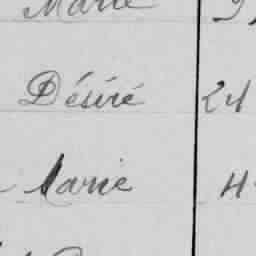 Marie
Désiré 24
Marie 4